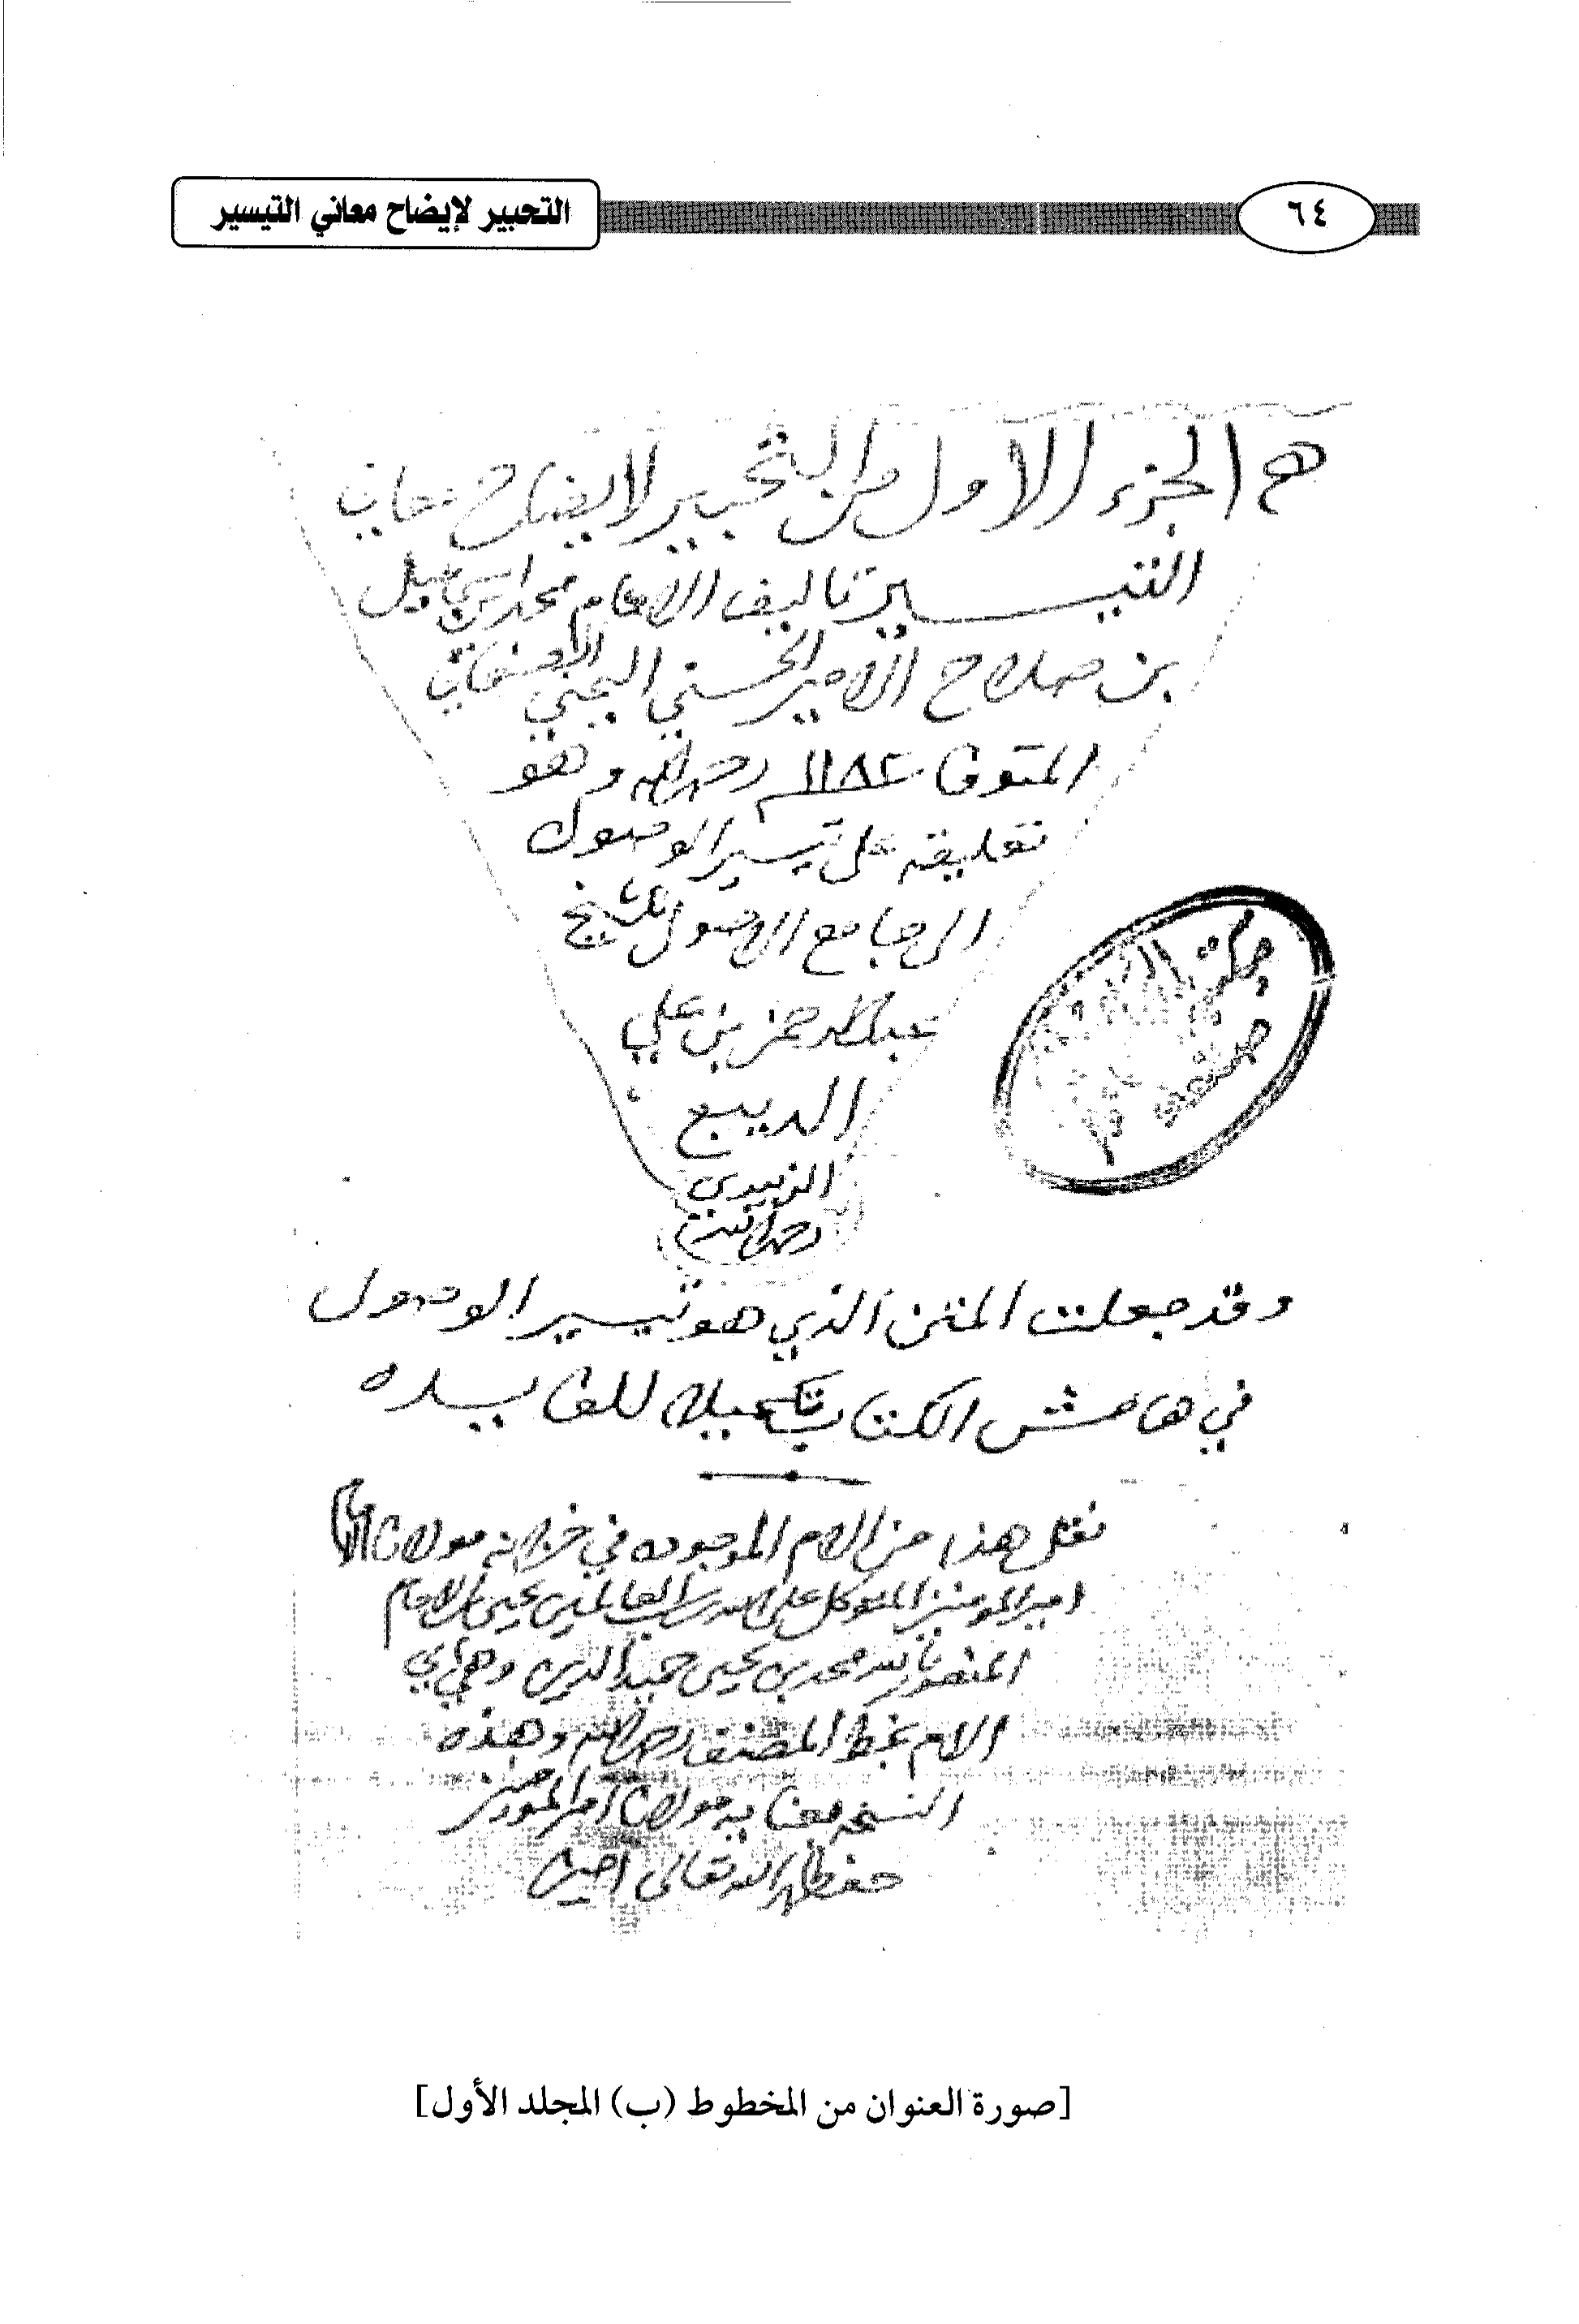 ٦٤
التحبير لإيضاح معاني التيسير
الجزء الاول من التحبير لايضاح معاني
التيسير تاليف الامام محمد بن اسماعيل
بن صلاح الامير الحسني اليمني الصنعاني
المتوفا ١١٨٢ رحمه الله وهو
تعليقه على تيسير الوصول
الى جامع الاصول للشيخ
عبد الرحمن بن علي
الديبع
الزبيدي
رحمه الله
وقد جعلت المتن الذي هو تيسير الوصول
في هامش الكتاب تكميلا للفايده
نقل هذا من الام الموجوده في خزانة مولانا
امير المومنين المتوكل على الله رب العالمين يحيى بن الامام
المنصور بالله محمد بن يحيى حميد الدين وهي اي
الام بخط المصنف رحمه الله وهذه
النسخه بعنايه مولانا امير المومنين
حفظه الله تعالى امين
[صورة العنوان من المخطوط (ب) المجلد الأول]